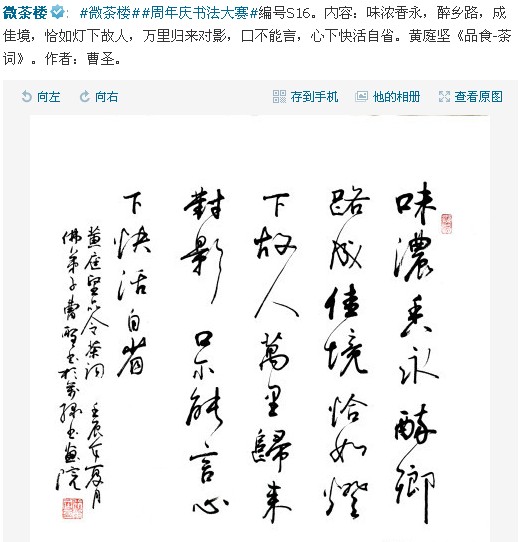 微茶楼：#微茶楼##周年庆书法大赛#编号S16。内容：味浓香永，醉乡路，成
佳境，恰如灯下故人，万里归来对影，口不能言，心下快活自省。黄庭坚《品食-茶
词》。作者：曹圣。
向左 向右 存到手机 他的相册 查看原图
味濃香永醉鄉
路成佳境恰如燈
下故人萬里歸來
對影口不能言心
下快活自省
黄庭堅品令茶詞 壬辰年夏月
佛弟子曹聖书於书画院